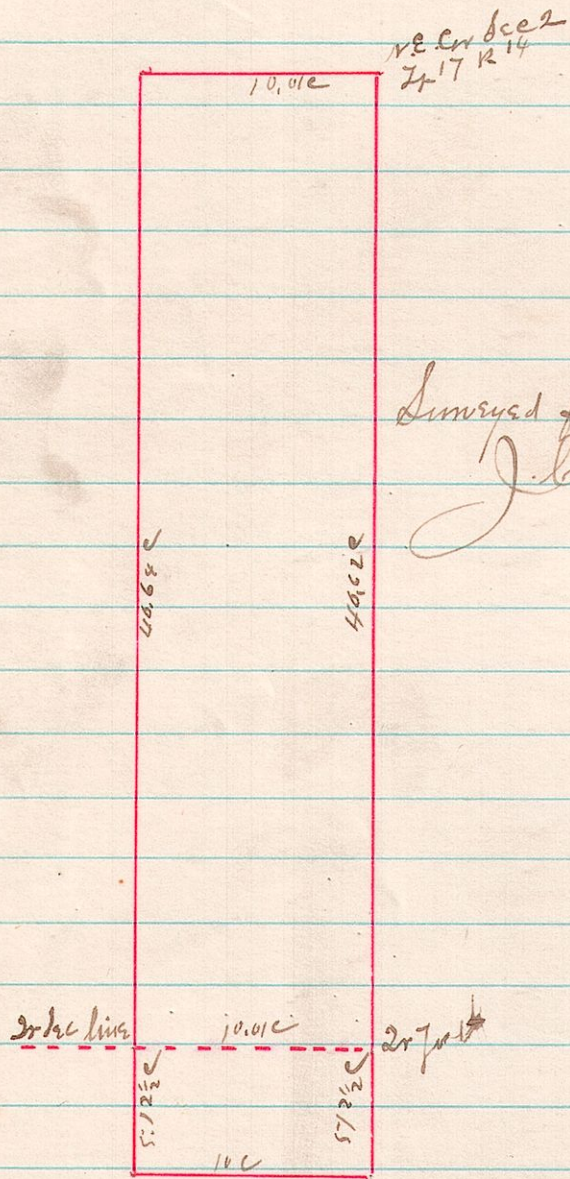 N.E. Cor Sec 2
Tp 17 R 14
10.01c
Surveyed
J.
40.64 c
40.62 c
Qr Sec line
10.01c
Qr Post
5.12½ c
5.12½ c
10 c